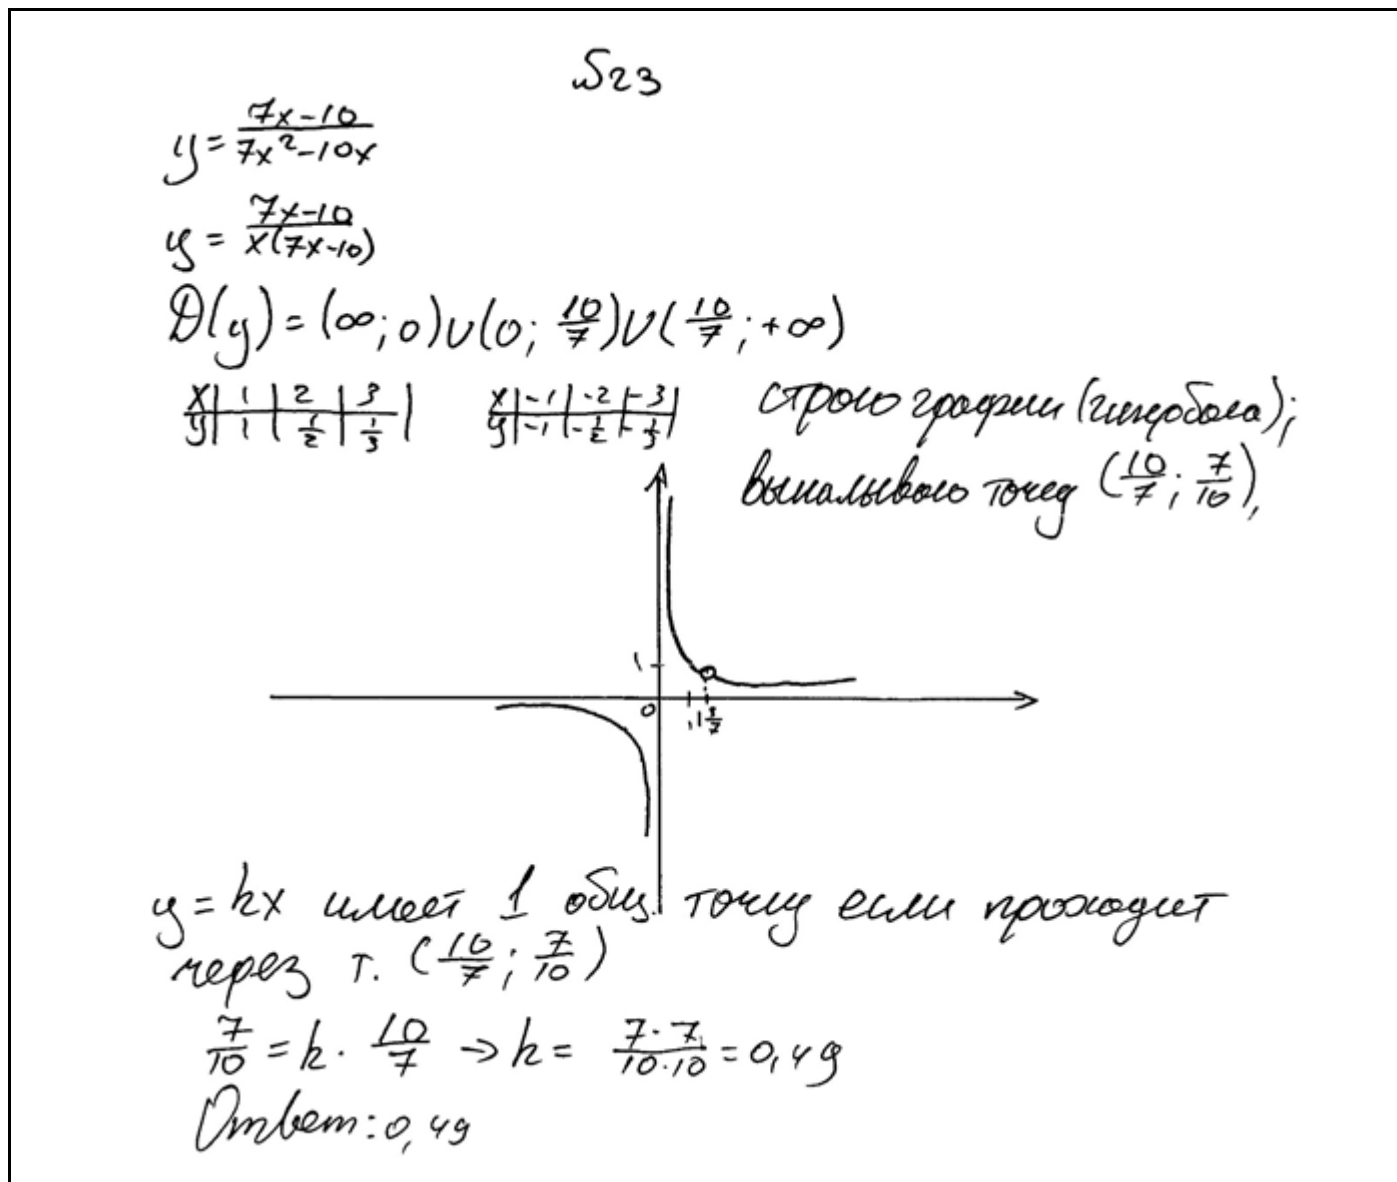 №23
y = \frac{7x-10}{7x^2-10x}
y = \frac{7x-10}{x(7x-10)}
D(y) = (∞; 0) ∪ (0; \frac{10}{7}) ∪ (\frac{10}{7}; +∞)
x | 1 | 2 | 3 |
y | 1 | \frac{1}{2} | \frac{1}{3} |
x | -1 | -2 | -3 |
y | -1 | -\frac{1}{2} | -\frac{1}{3} |
строю график (гипербола);
выкалываю точку (\frac{10}{7}; \frac{7}{10}),
1
0 1 1\frac{3}{7}
y = kx имеет 1 общ. точку если проходит
через т. (\frac{10}{7}; \frac{7}{10})
\frac{7}{10} = k · \frac{10}{7} → k = \frac{7·7}{10·10} = 0,49
Ответ: 0,49